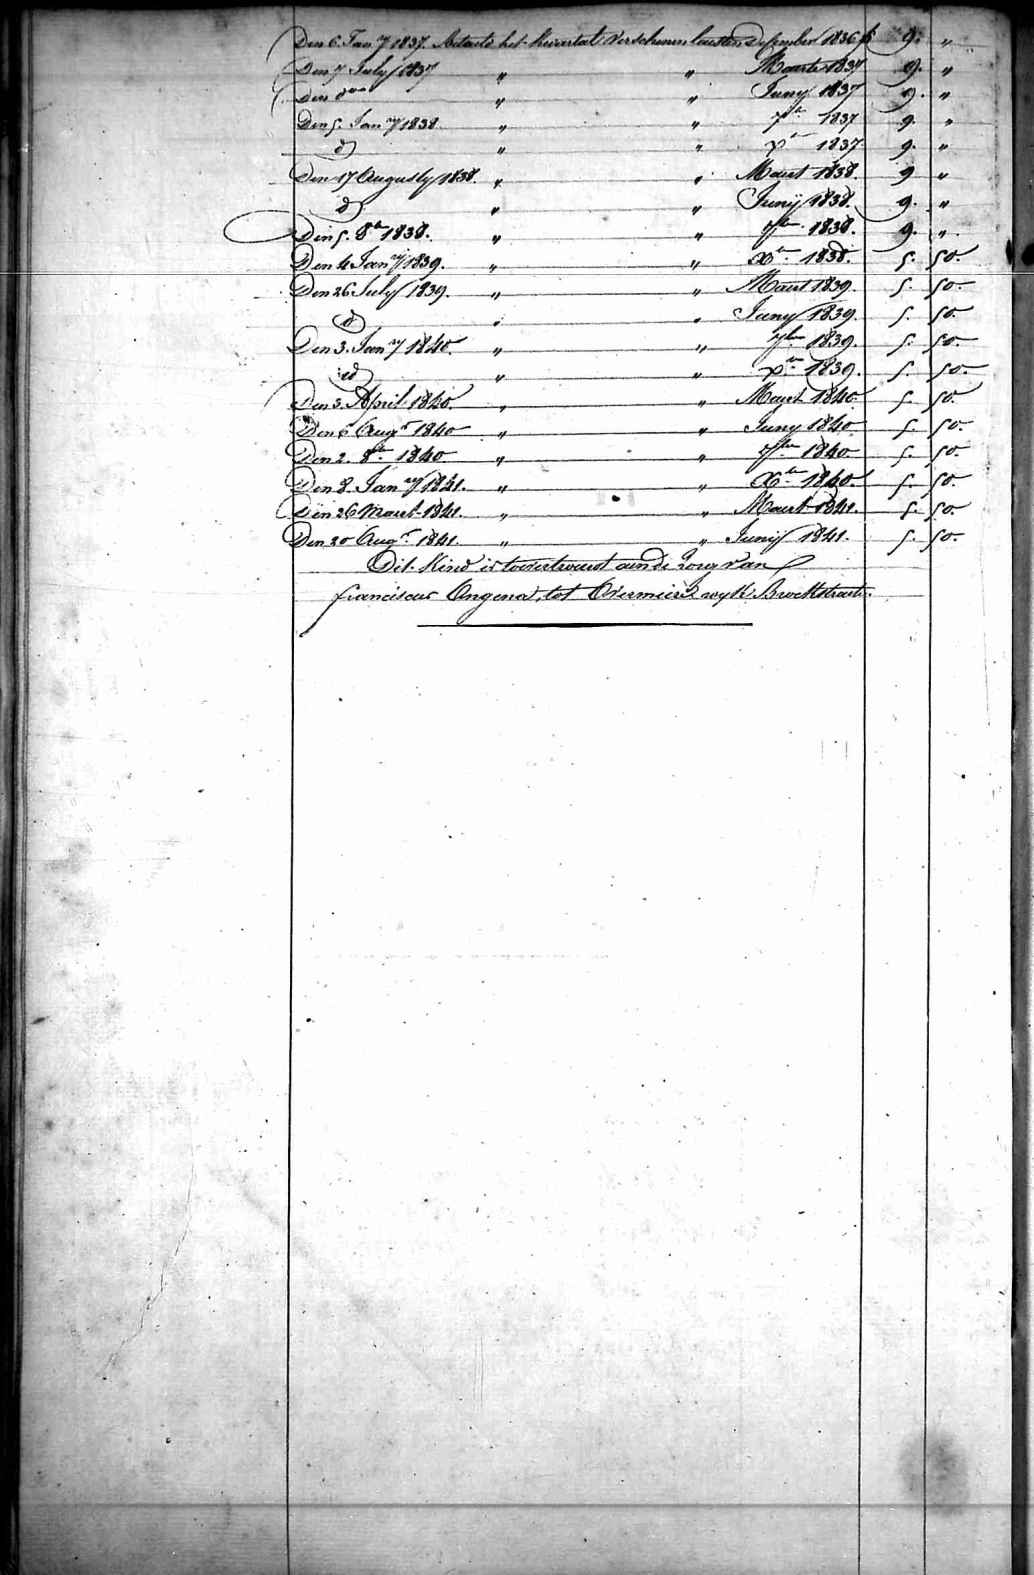 Den 6 Jan.ry 1837. betaeld het kwartael verschenen laesten December 1836 f 9. "
Den 7 July 1837 " " Maerte 1837 9. "
Den d.o " " Juny 1837 9. "
Den 5. Jan.ry 1838. " " 7.br 1837 9. "
d.o " " X.br 1837 9. "
Den 17 Augusty 1838. " " Maert 1838. 9 "
d.o " " Junij 1838. 9. "
Den 5. 8.br 1838. " " 7.br 1838. 9. "
Den 4 Jan.ry 1839. " " X.br 1838. 5. 50.
Den 26 July 1839. " " Maert 1839. 5. 50.
d.o " " Juny 1839. 5. 50.
Den 3. Jan.ry 1840. " " 7.br 1839. 5. 50.
d.o " " X.br 1839. 5. 50.
Den 3. April 1840. " " Maert 1840. 5. 50.
Den 6 Aug.t 1840 " " Juny 1840 5. 50.
Den 2. 8.br 1840 " " 7.br 1840 5. 50.
Den 8. Jan.ry 1841. " " X.br 1840 5. 50.
Den 26 Maert 1841. " " Maert 1841. 5. 50.
Den 20 Aug.t 1841. " " Junij 1841. 5. 50.
Dit Kind is toevertrouwt aen de zorg van
franciscus Ongena, tot Overmeire wyk Broekstraete.